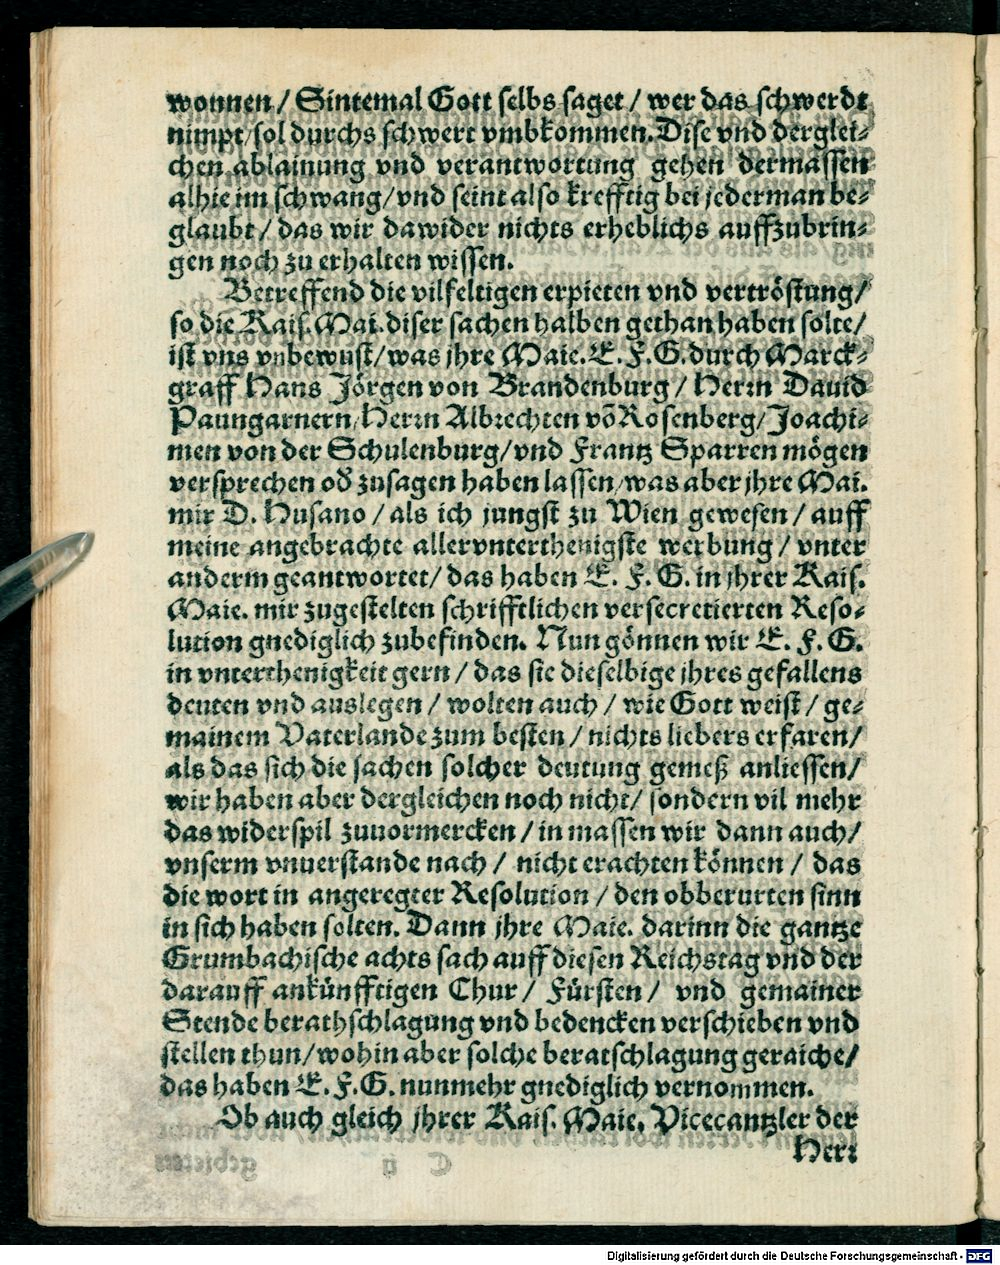 wonnen / Sintemal Gott selbs saget / wer das schwerdt
nimpt / sol durchs schwert vmbkommen. Dise vnd derglei⸗
chen ablainung vnd verantwortung gehen dermassen
alhie im schwang / vnd seint also krefftig bei jederman be⸗
glaubt / das wir dawider nichts erheblichs auffzubrin⸗
gen noch zu erhalten wissen.
Betreffend die vilfeltigen erpieten vnd vertröstung /
so die Kais. Mai. diser sachen halben gethan haben solte /
ist vns vnbewust / was jhre Maie. E. F. G. durch Marck⸗
graff Hans Jörgen von Brandenburg / Herrn Dauid
Paungarnern / Herrn Albrechten võ Rosenberg / Joachi⸗
men von der Schulenburg / vnd Frantz Sparren mögen
versprechen od̕ zusagen haben lassen / was aber jhre Mai.
mir D. Husano / als ich jungst zu Wien gewesen / auff
meine angebrachte allervnterthenigste werbung / vnter
anderm geantwortet / das haben E. F. G. in jhrer Kais.
Maie. mir zugestelten schrifftlichen versecretierten Reso⸗
lution gnediglich zubefinden. Nun gönnen wir E. F. G.
in vnterthenigkeit gern / das sie dieselbige jhres gefallens
deuten vnd auslegen / wolten auch / wie Gott weist / ge⸗
mainem Vaterlande zum besten / nichts liebers erfaren /
als das sich die sachen solcher deutung gemeß anliessen /
wir haben aber dergleichen noch nicht / sondern vil mehr
das widerspil zuuormercken / in massen wir dann auch /
vnserm vnuerstande nach / nicht erachten können / das
die wort in angeregter Resolution / den obberurten sinn
in sich haben solten. Dann jhre Maie. darinn die gantze
Grumbachische achts sach auff diesen Reichstag vnd der
darauff ankünfftigen Chur / Fürsten / vnd gemainer
Stende berathschlagung vnd bedencken verschieben vnd
stellen thun / wohin aber solche beratschlagung geraiche /
das haben E. F. G. nunmehr gnediglich vernommen.
Ob auch gleich jhrer Kais. Maie. Vicecantzler der
Herr
Digitalisierung gefördert durch die Deutsche Forschungsgemeinschaft - DFG